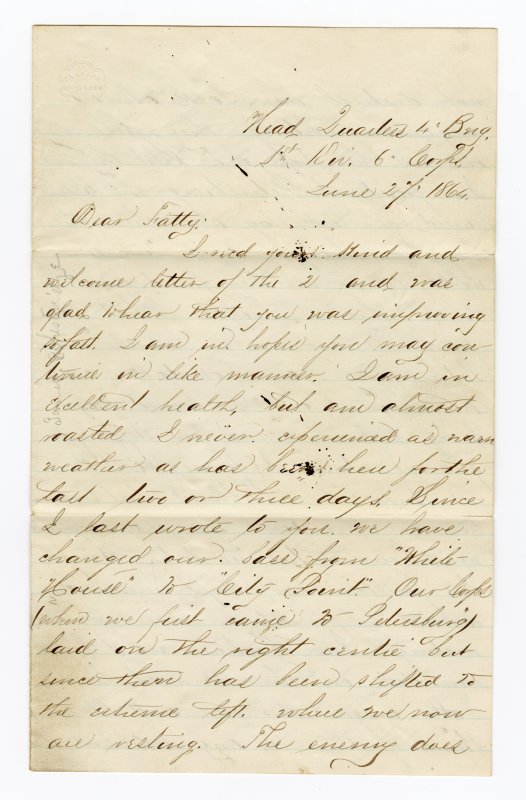 Head Quarters 4" Brig.
1st Div. 6" Corps.
June 27" 1864.
Dear Fatty;
I recd your kind and
welcome letter of the 2 and was
glad to hear that you was improving
so fast. I am in hopes you may con
tinue in like manner. I am in
excellent health, but am almost
roasted I never experienced as warm
weather as has been here for the
last two or three days. Since
I last wrote to you we have
changed our base from "White
House" to "City Point." Our Corps
(when we first came to Petersburg)
laid on the right centre but
since then has been shifted to
the extreme left. where we now
are resting. The enemy does